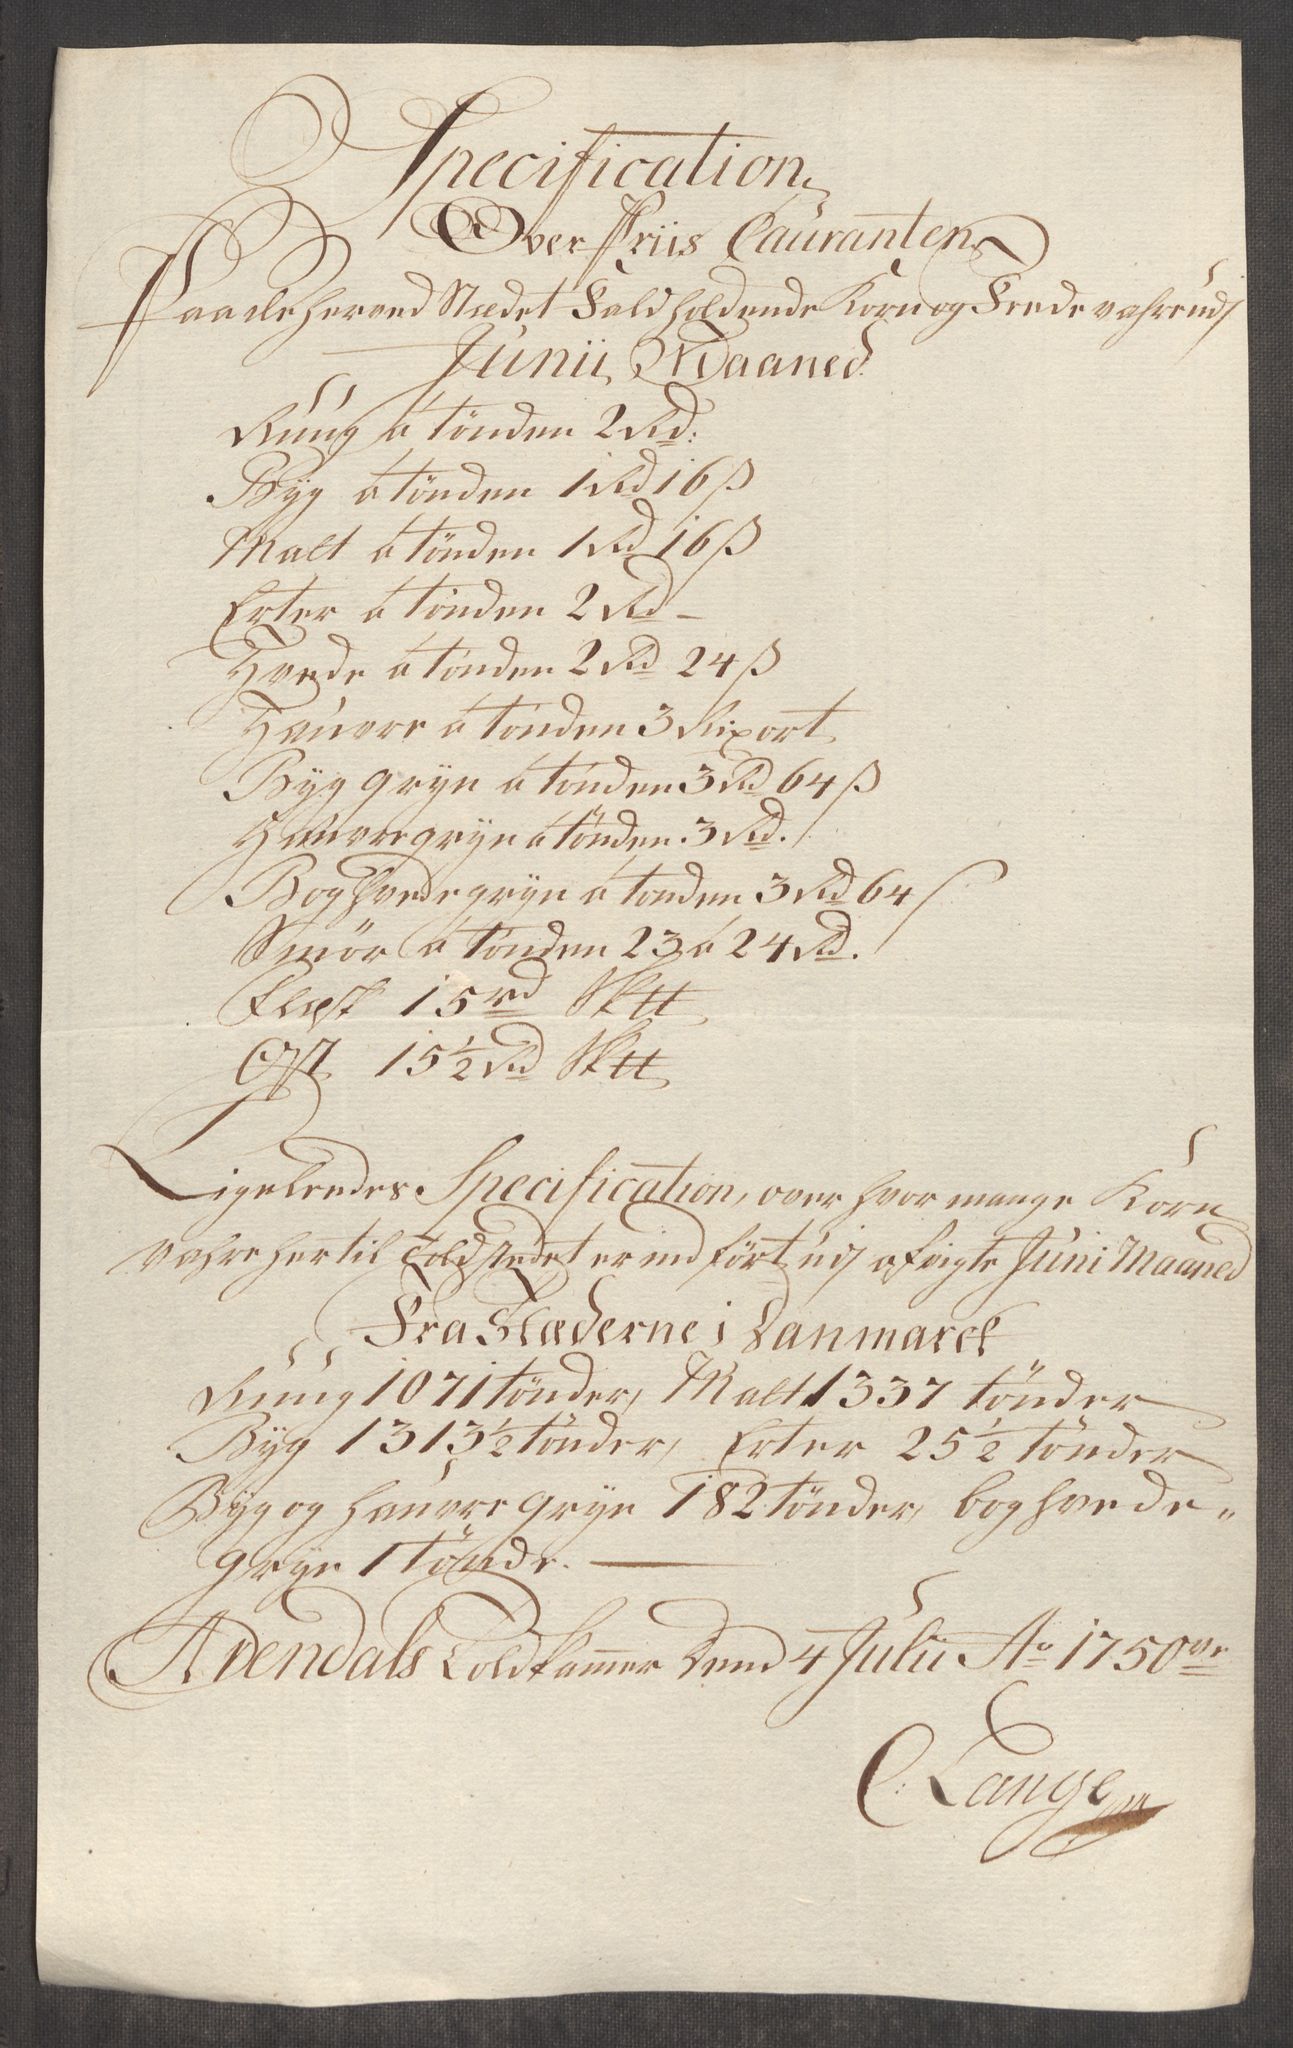 Specification
Over Priis Couranten
Paa de her ved Stædet Fald holdende Korn og Fede vahre udj
Junii Maaned
Rúúg á tönden 2 Rd:
Byg á tönden 1 Rd 16 ß
Malt á tönden 1 Rd 16 ß
Erter á tönden 2 Rd –
Hvede á tönden 2 Rd 24 ß
Hauvre á tönden 3 Rixort
Byggryn á tönden 3 Rd 64 ß
Hauvregryn á tönden 3 Rd.
Boghvedegryn á tönden 3 Rd 64 ß
Smör á tönden 23 á 24 Rd.
Flæsk 15 rd Sktt
Ost 15½ Rd Sktt
Ligeleedes Specification, over hvor mange Korn
vahre her til Toldstedet er indfört udj afvigte Juni Maaned
Fra Stæderne i Danmarck
Rúúg 1071 tönder, Malt 1337 tönder
Byg 1313½ tönder, Erter 25½ tönder
Byg og hauvre gryn 182 tönder, boghvede„
gryn 1 tönde.
Arendals Toldkammer Dend 4 Julii Ao 1750ve
C: Lange